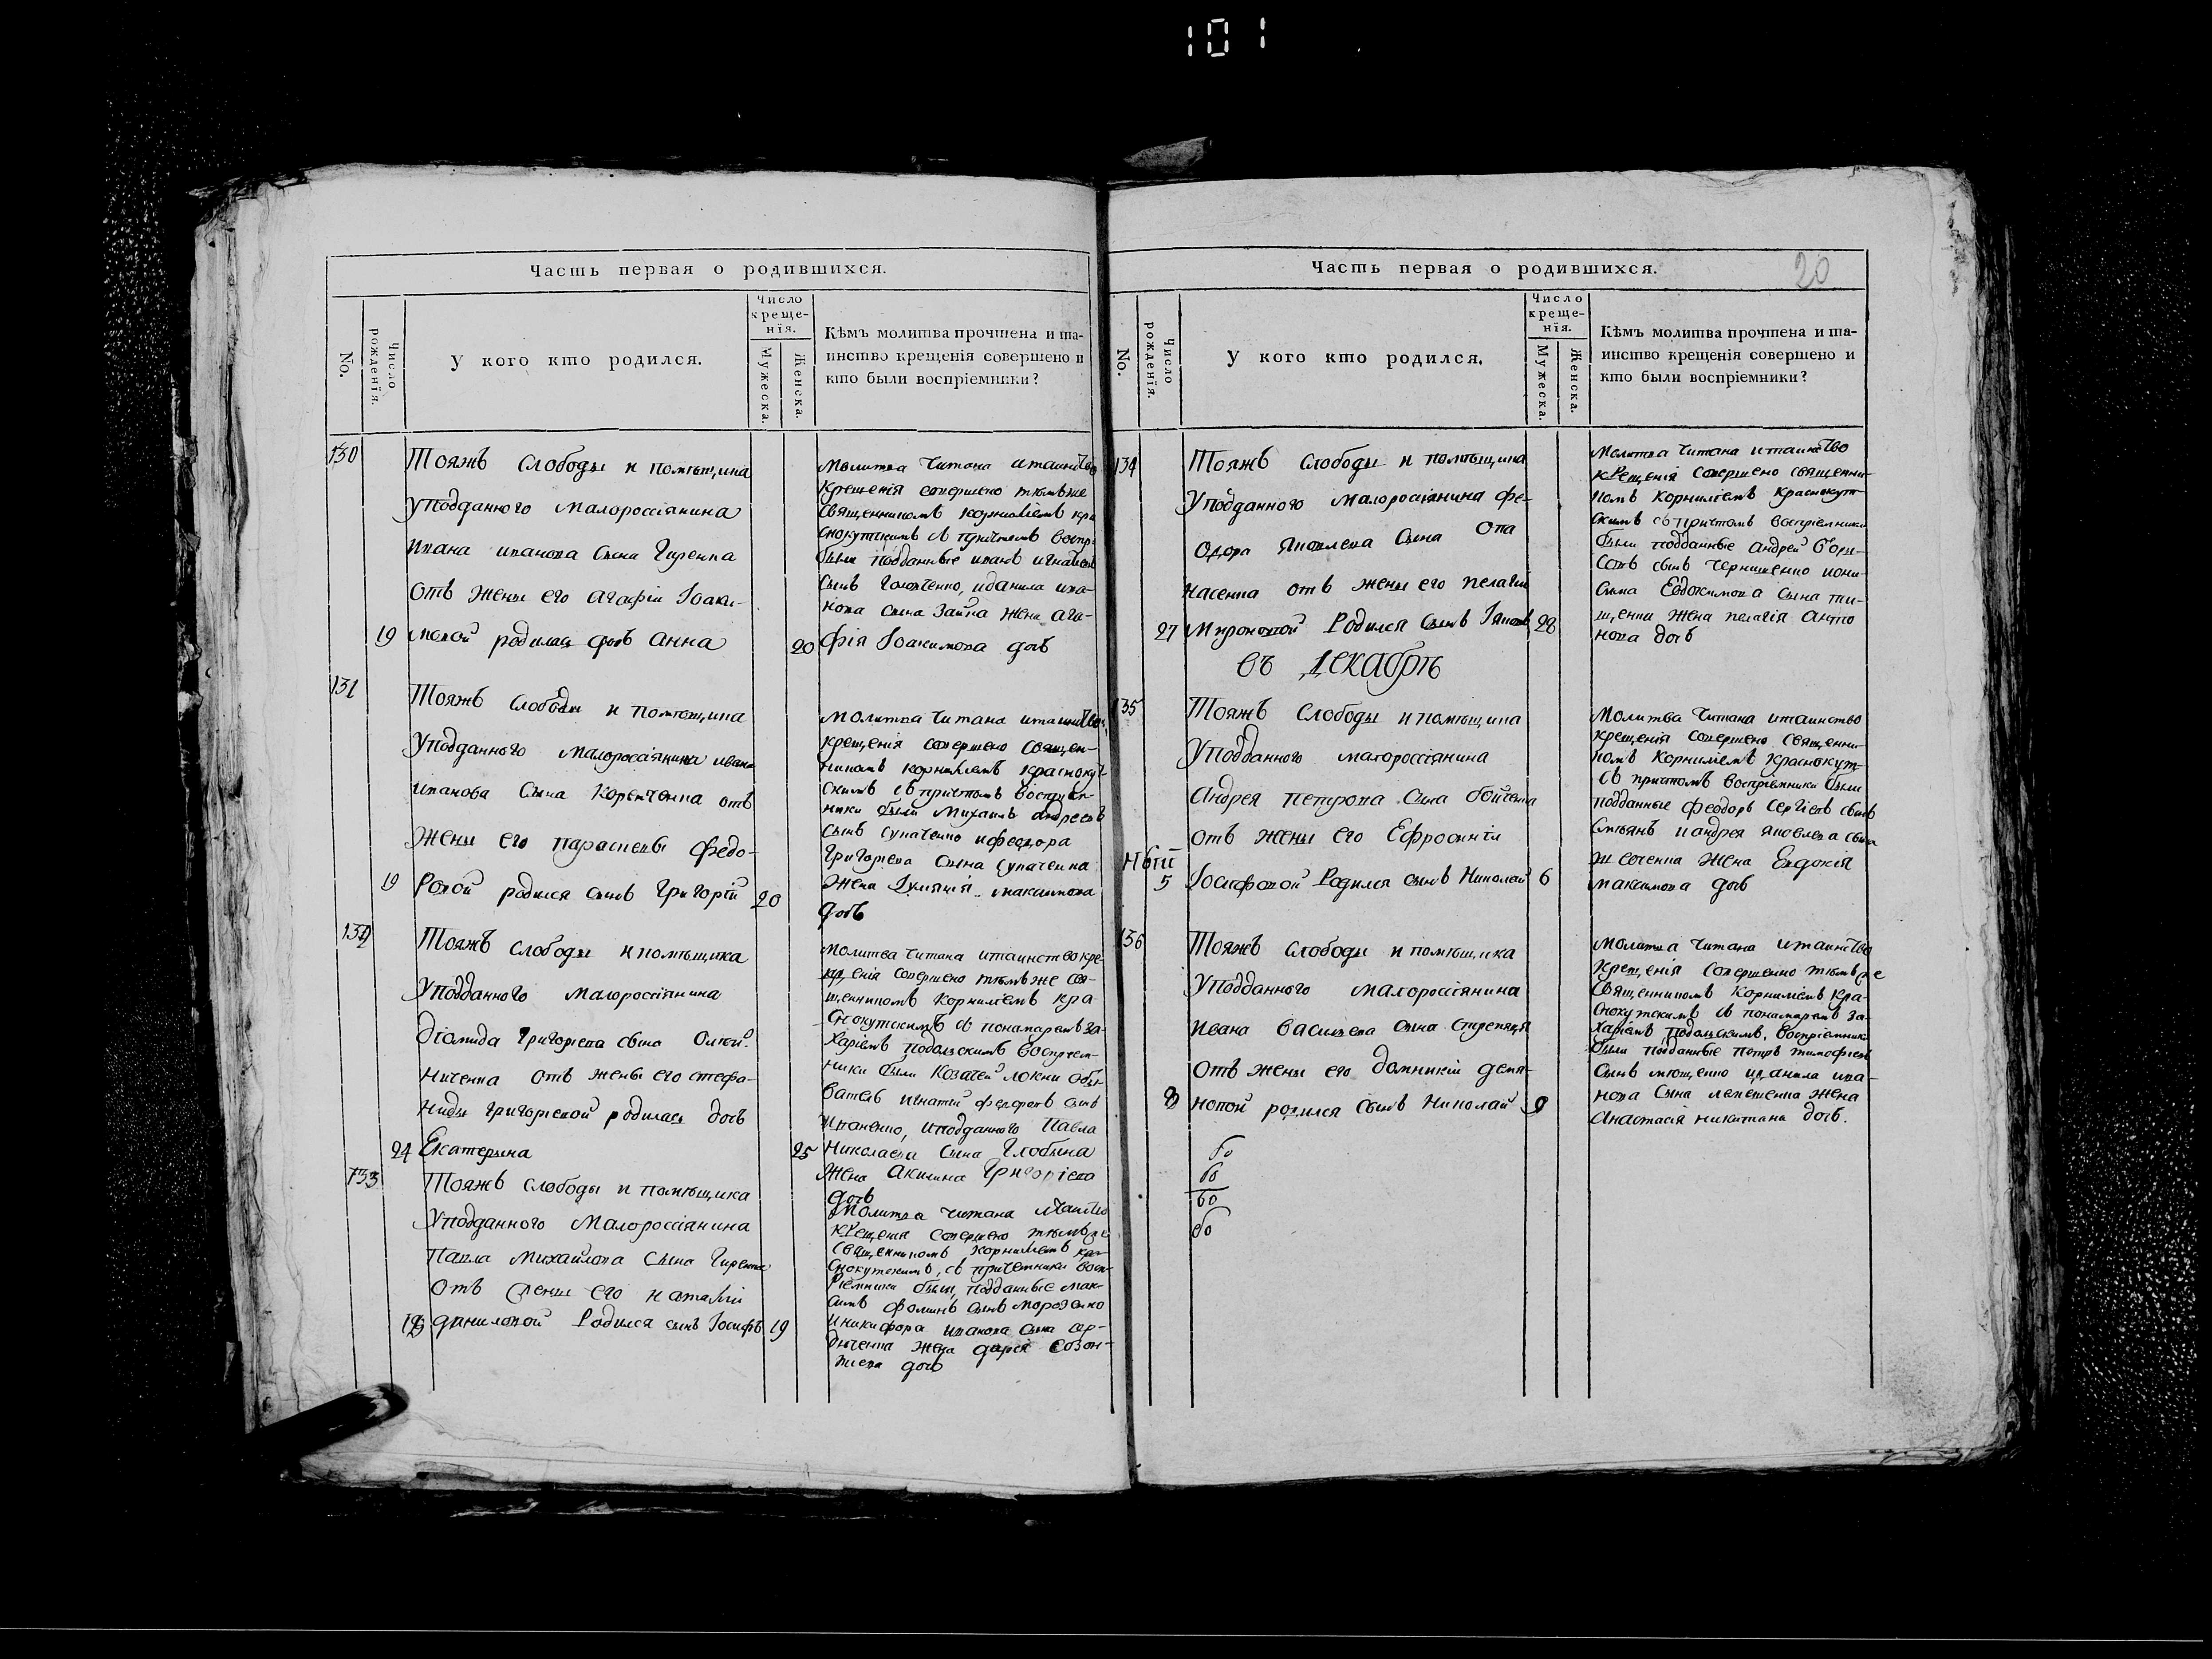 101
Часть первая о родившихся.
No.
Число рожденія.
У кого кто родился.
Число крещенія.
Мужеска.
Женска.
Кѣмъ молитва прочтена и та-
инство крещенія совершено и
кто были воспріемники?
130
Тояжъ слободы и помѣщика
Уподданного малороссіянина
Ивана иванова сына
отъ жены его агафіи Іоаки-
19 мовой родилась дочь анна 20
молитва читана итаинство
крещенія совершено тѣмъже
священникомъ корниліемъ кра
снокутскимъ съ причтомъ воспр:
были подданные иванъ игнатіевъ
сынъ иданила ива-
нова сына жена ага-
фія Іоакимова дочь
131
Тояжъ слободы и помѣщика
Уподданного малороссіянина ивана
иванова сына отъ
жены его параскевы федо-
19 ровой родился сынъ Григорій 20
молитва читана итаинство
крещенія совершено священ-
никомъ корниліемъ краснокут-
скимъ съ причтомъ воспріем-
ники были михаилъ андреевъ
сынъ супаченко ифеодора
григоріева сына супаченка
жена максимова
дочь
132
Тояжъ слободы и помѣщика
Уподданного малороссіянина
діомида григоріева сына
отъ жены его стефа-
ниды григоріевой родилась дочь
24 Екатерина 25
молитва читана итаинство кре-
щенія совершено тѣмъ же свя-
щенникомъ корниліемъ кра-
снокутскимъ съ пономаремъ за-
харіемъ подольскимъ воспріем-
ники были козачей локни обы-
ватель игнатій сынъ
иподданного павла
николаева сына
жена акилина григоріева
дочь
133
Тояжъ слободы и помѣщика
Уподданного малороссіянина
павла михайлова сына
отъ жены его наталіи
18 даниловой родился сынъ Іосифъ 19
молитва читана
крещенія совершено тѣмъже
священникомъ корниліемъ кра-
снокутскимъ, съ причетники восп-
ріемники были, подданные мак-
симъ фоминъ сынъ
иникифора иванова сына сер-
дюченка жена дарія созон-
тиева дочь
Часть первая о родившихся.
20
No.
Число рожденія.
У кого кто родился.
Число крещенія.
Мужеска.
Женска.
Кѣмъ молитва прочтена и та-
инство крещенія совершено и
кто были воспріемники?
134
Тояжъ слободы и помѣщика
Уподданного малороссіянина фе-
одора Яковлева сына опа
насенка отъ жены его пелагіи
27 мироновой Родился сынъ 28
молитва читана итаинство
крещенія совершено священни-
комъ корниліемъ краснокут-
скимъ съ причтомъ воспріемники
были подданные андрей бори-
совъ сынъ чернишенко
сына Евдокимова сына ти-
щенка жена пелагія анто
нова дочь
въ декабрѣ
135
Тояжъ слободы и помѣщика
Уподданного малороссіянина
андрея петрова сына бойченка
отъ жены его Ефросиніи
5 Іосифовой Родился сынъ Николай 6
молитва читана итаинство
крещенія совершено священни-
комъ корниліемъ краснокут-
съ причтомъ воспріемники были
подданные феодоръ сергіевъ сынъ
иандрея яковлева сына
жена Евдокія
максимова дочь
136
Тояжъ слободы и помѣщика
Уподданного малороссіянина
ивана василіева сына
отъ жены его домникіи демя-
8 новой родился сынъ Николай 9
молитва читана итаинство
крещенія совершенно тѣмъже
священникомъ корниліемъ кра-
снокутскимъ съ пономаремъ за-
харіемъ подольскимъ, воспріемники
были подданные петръ тимофіевъ
сынъ иданила ива-
нова сына жена
анастасія никитина дочь.
60